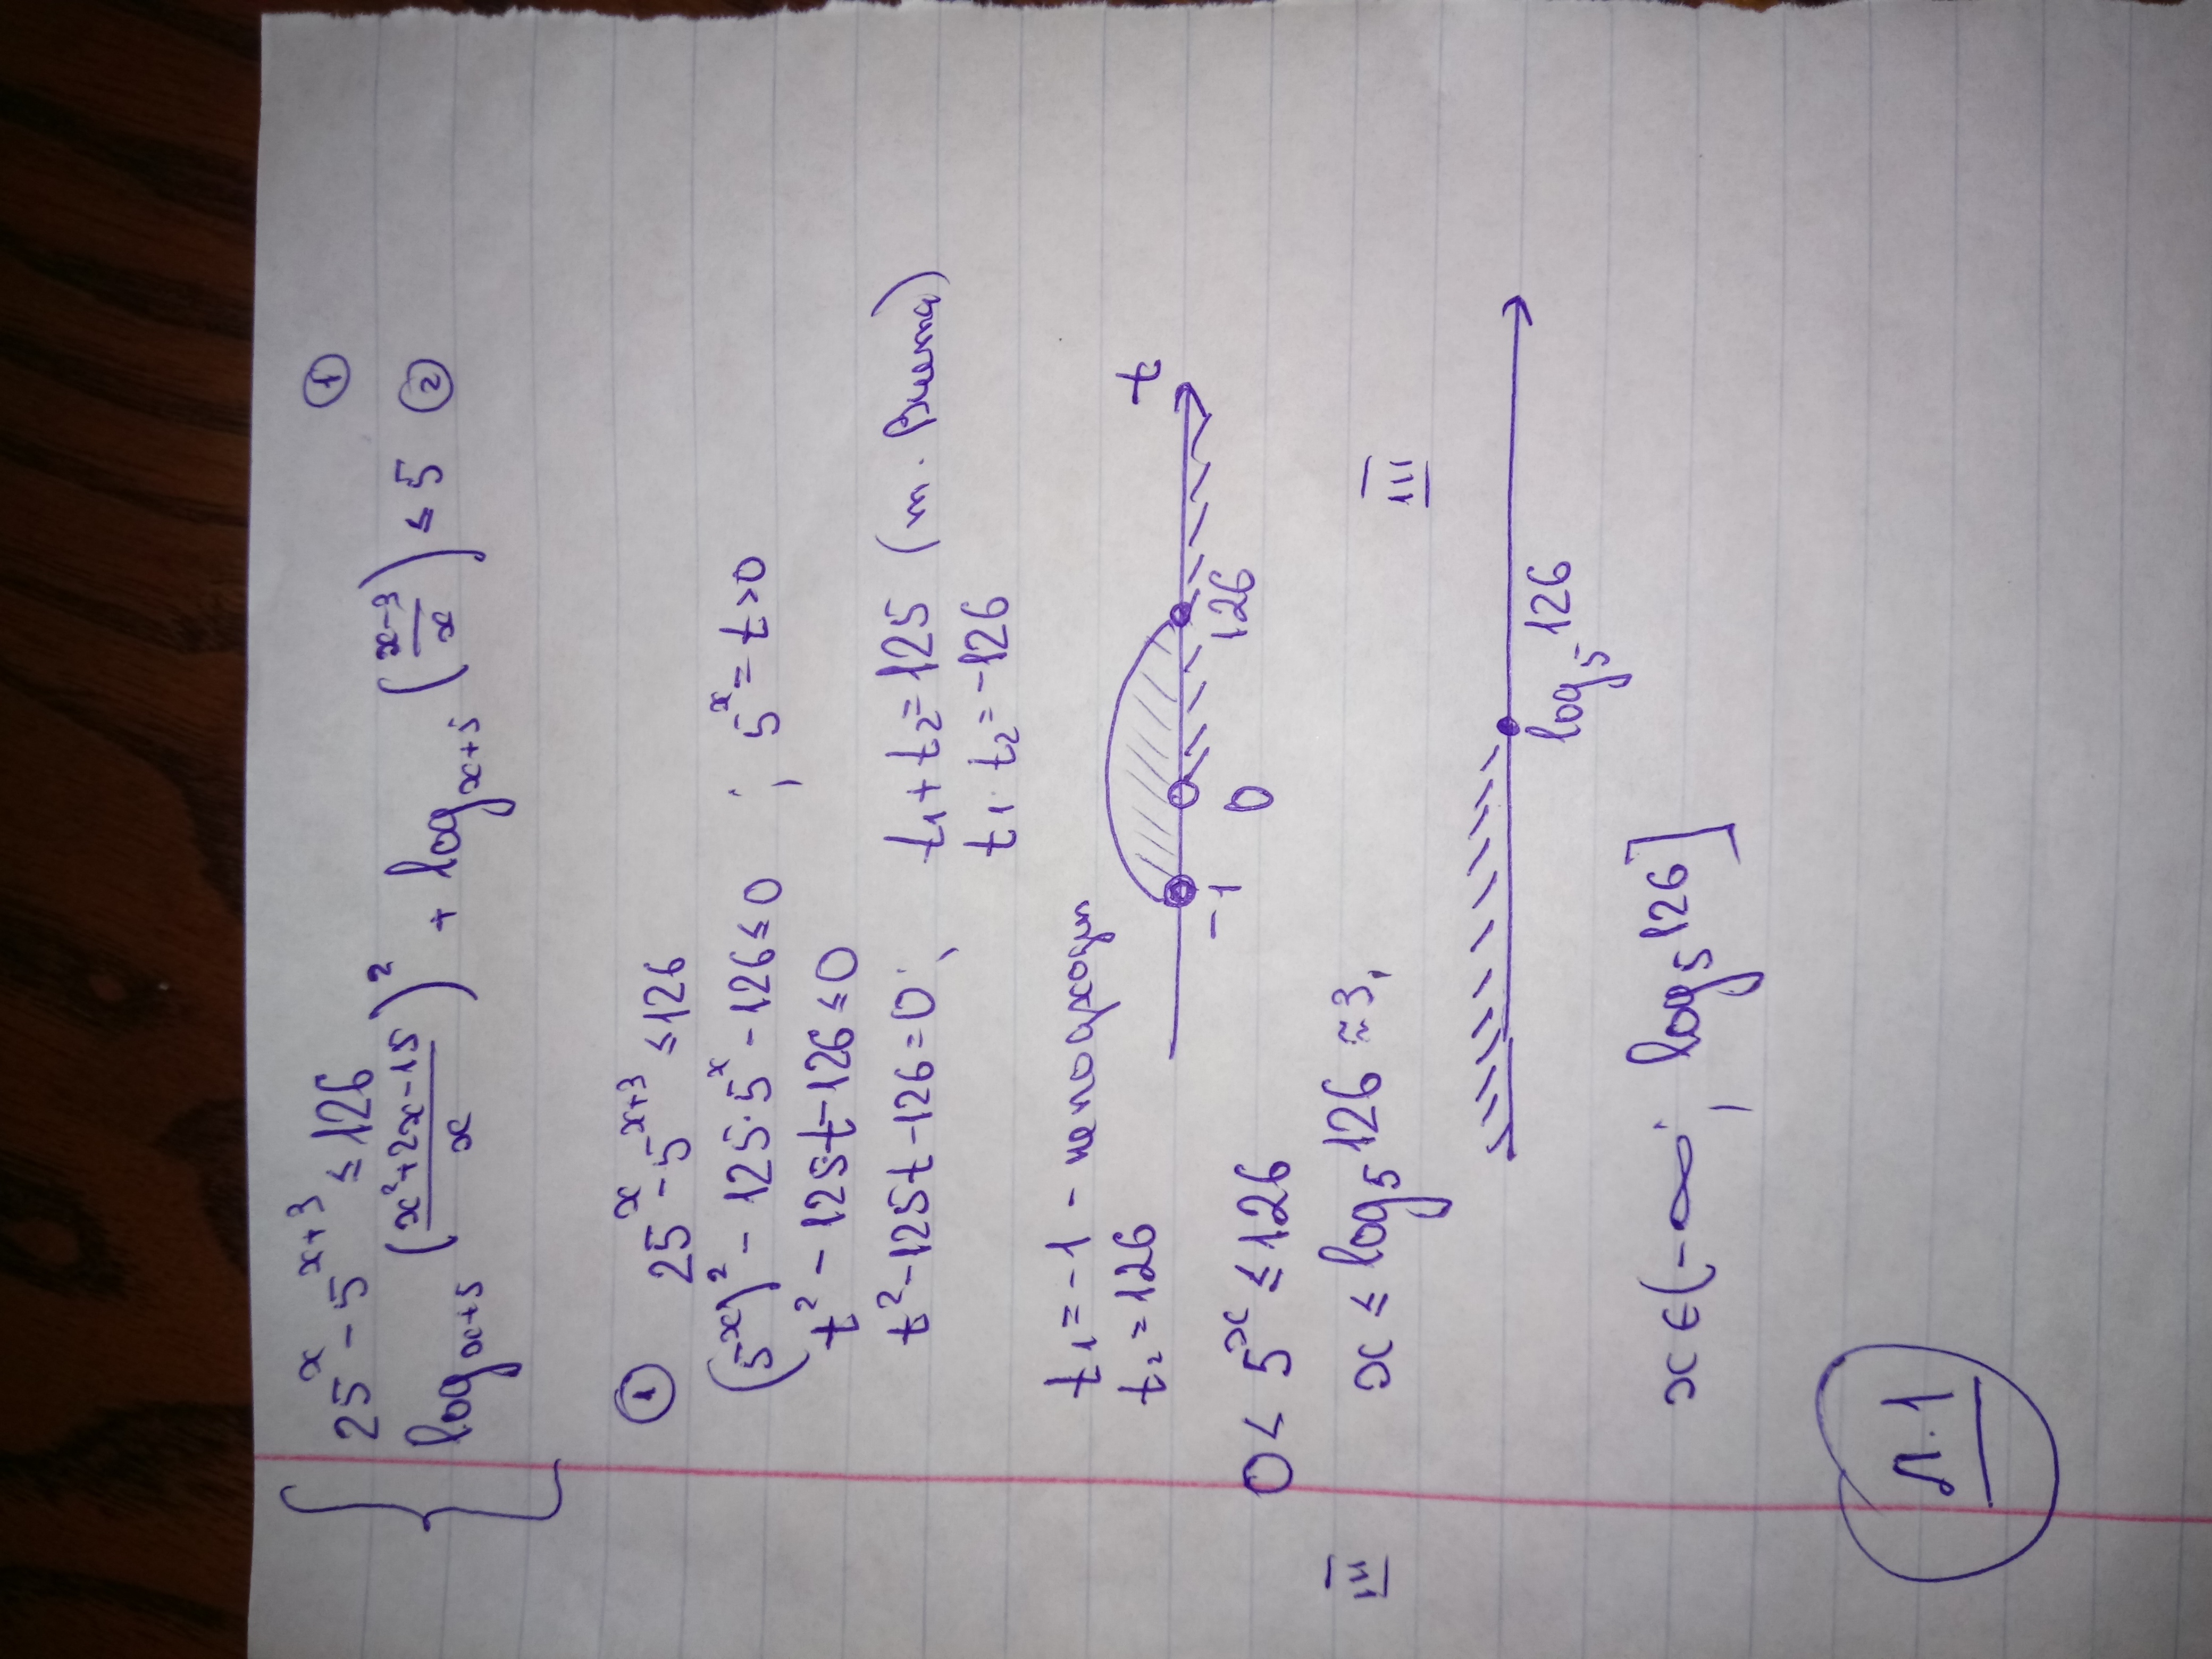 { 25^x - 5^(x+3) ≤ 126 ①
log_(x+5) ((x²+2x-15)/x)² + log_(x+5) ((x-3)/x) ≤ 5 ②
① 25^x - 5^(x+3) ≤ 126
(5^x)² - 125·5^x - 126 ≤ 0 ; 5^x = t > 0
t² - 125t - 126 ≤ 0
t² - 125t - 126 = 0; t₁ + t₂ = 125 (т. Виета)
t₁ · t₂ = -126
t₁ = -1 - не подходит
t₂ = 126
-1 0 126 t
0 < 5^x ≤ 126
III x ≤ log₅ 126 ≈ 3, III
log₅ 126
x ∈ (-∞; log₅ 126]
Л. 1